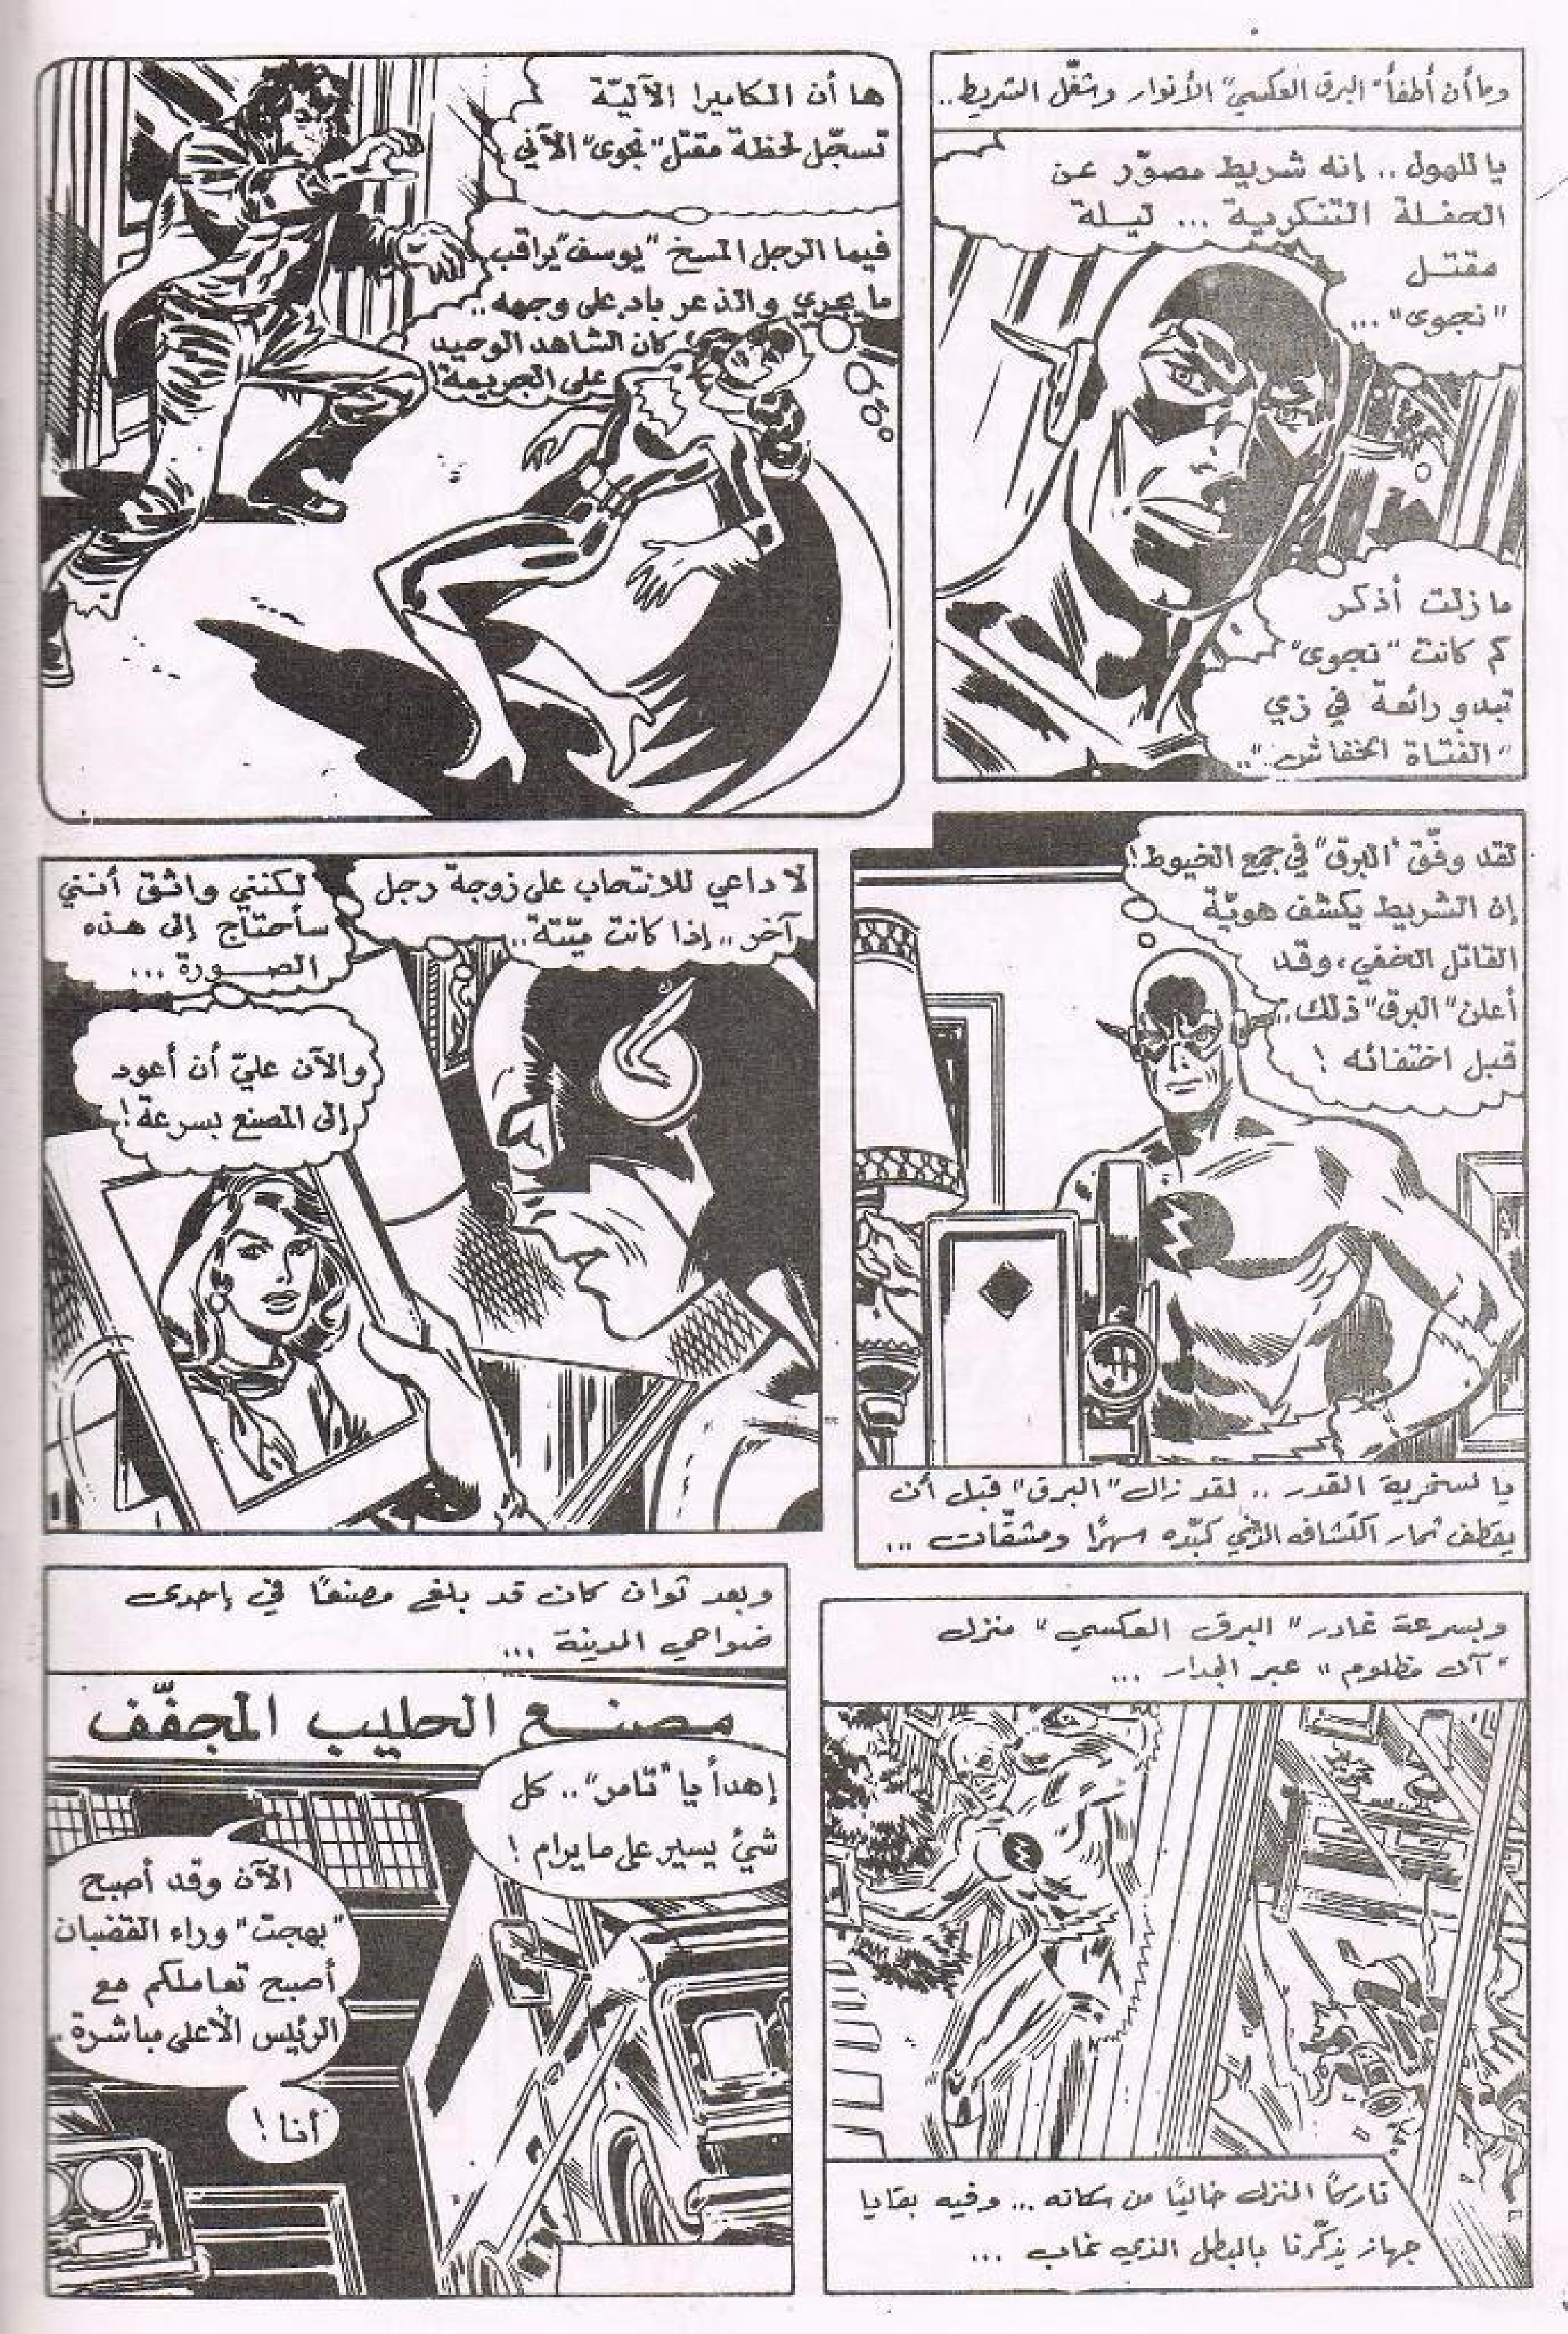 وما أن أطفأ "البرق العكسي" الأنوار وشغّل الشريط..
يا للهول .. إنه شريط مصوّر عن
الحفلة التنكرية ... ليلة
مقتل
"نجوى"...
ما زلت أذكر
كم كانت "نجوى"
تبدو رائعة في زي
"الفتاة الخفاش"..
ها أن الكاميرا الآلية
تسجّل لحظة مقتل "نجوى" الآني
فيما الرجل المسخ "يوسف" يراقب
ما يجري والذعر باد على وجهه ..
كان الشاهد الوحيد
على الجريمة!
لقد وفّق "البرق" في جمع الخيوط!
إن الشريط يكشف هويّة
القاتل الخفي، وقد
أعلن "البرق" ذلك
قبل اختفائه !
يا لسخرية القدر .. لقد زال "البرق" قبل أن
يقطف ثمار اكتشافه الذي كبّده سهرًا ومشقّات ...
لا داعي للانتحاب على زوجة رجل
آخر .. إذا كانت ميّتة ..
لكنني واثق أنني
سأحتاج إلى هذه
الصورة ...
والآن عليّ أن أعود
إلى المصنع بسرعة !
وبسرعة غادر "البرق العكسي" منزل
"آل مظلوم" عبر الجدار ...
تاركًا المنزل خاليًا من سكانه ... وفيه بقايا
جهاز يذكّرنا بالبطل الذي غاب ...
وبعد ثوان كان قد بلغ مصنعًا في إحدى
ضواحي المدينة ...
مصنع الحليب المجفّف
إهدأ يا "تامر".. كل
شيء يسير على ما يرام !
الآن وقد أصبح
"بهجت" وراء القضبان
أصبح تعاملكم مع
الرئيس الأعلى مباشرة ..
أنا !